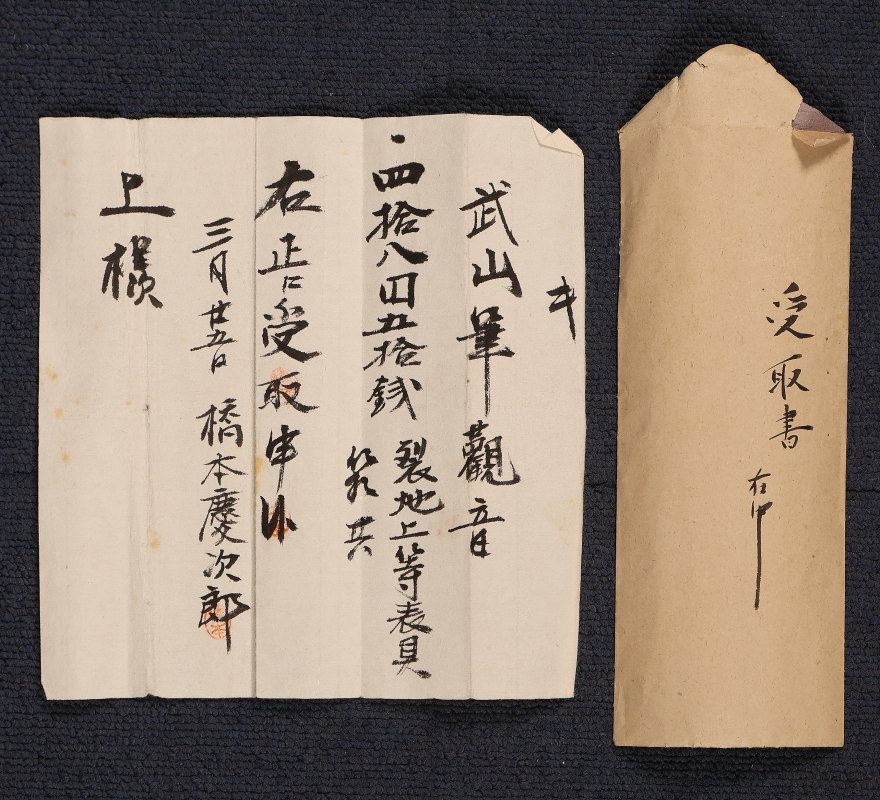 武山筆觀音
一四拾八円五拾銭
裂地上等表具
箱共
右正に受取申候
三月廿五日 橋本慶次郎
上様
受取書
在中